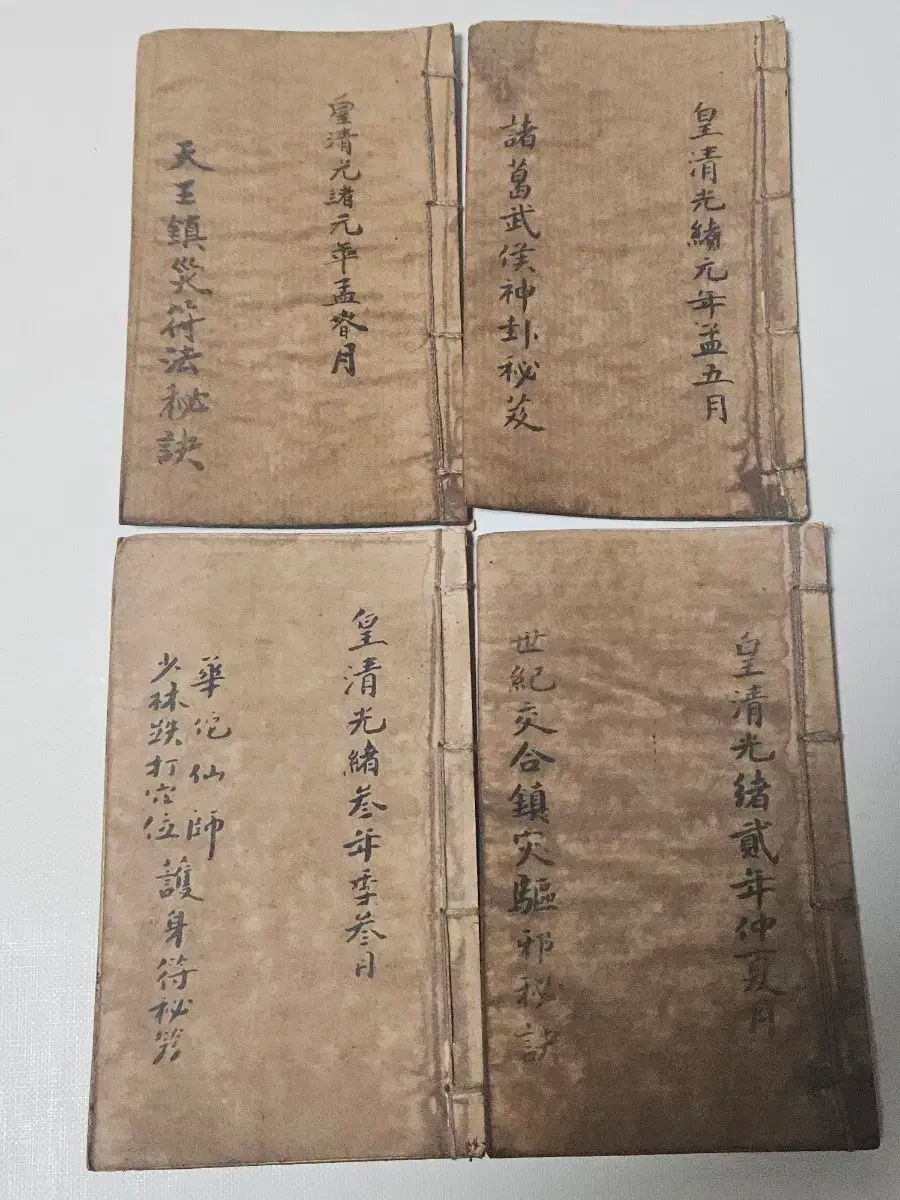 皇清光緒元年孟五月
諸葛武侯神卦秘笈
皇清光緒元年孟春月
天王鎮災符法秘訣
皇清光緒貳年仲夏月
世紀交合鎮灾驅邪秘訣
皇清光緒叁年季叁月
華佗仙師
少林跌打穴位
護身符秘笈